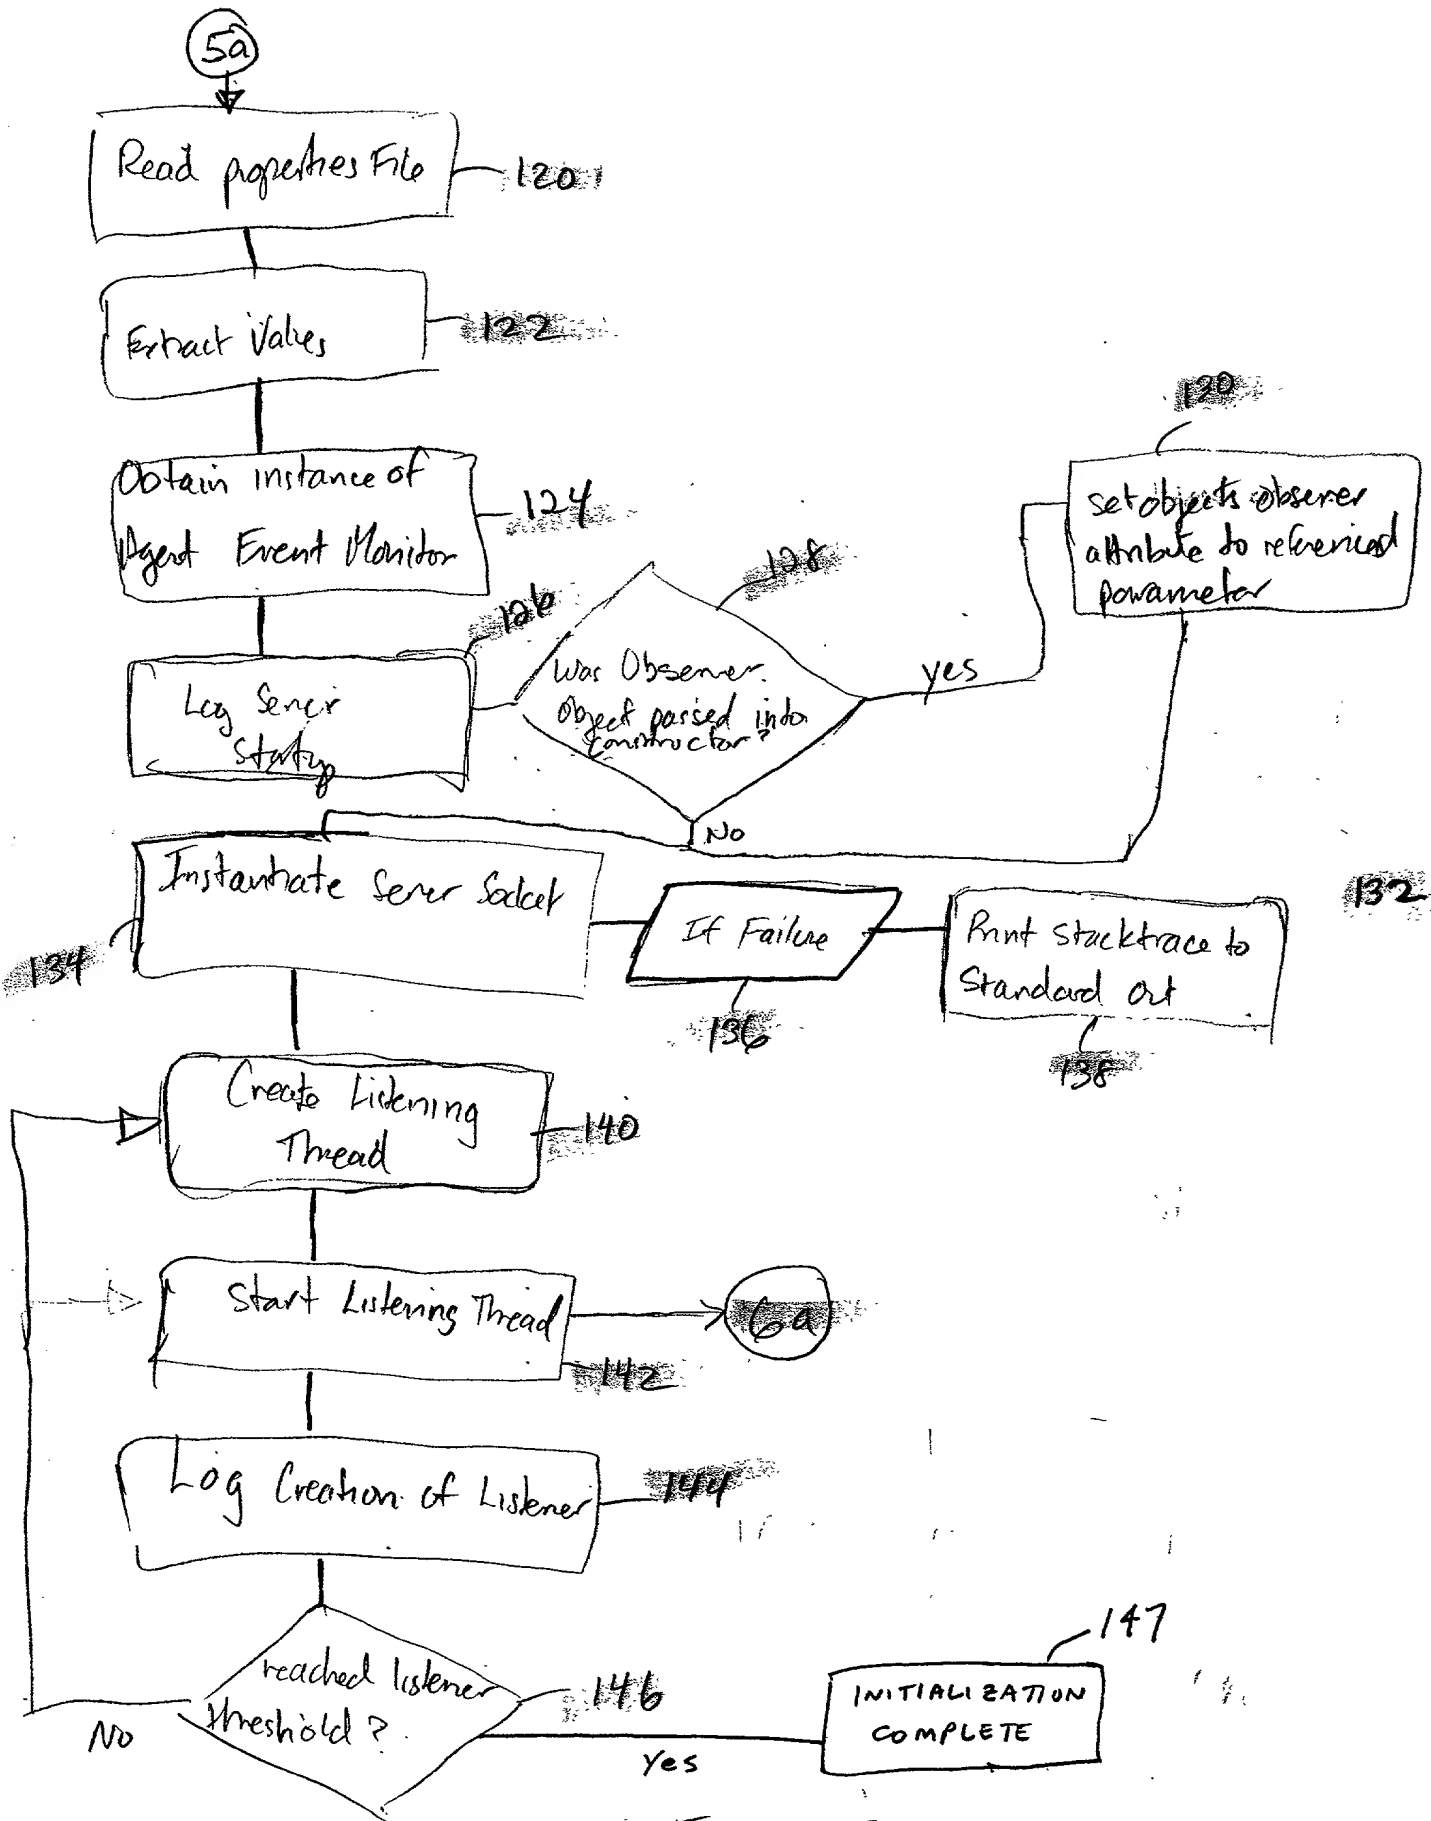 5a
Read properties File
120
Extract Values
122
130
Obtain instance of
Agent Event Monitor
124
set objects observer
attribute to referenced
parameter
128
126
Log Server
Startup
Was Observer
Object passed into
constructor?
yes
No
Instantiate Server Socket
134
If Failure
136
Print Stacktrace to
Standard Out
138
132
Create Listening
Thread
140
Start Listening Thread
142
6a
Log Creation of Listener
144
reached listener
threshold?
146
No
Yes
147
INITIALIZATION
COMPLETE